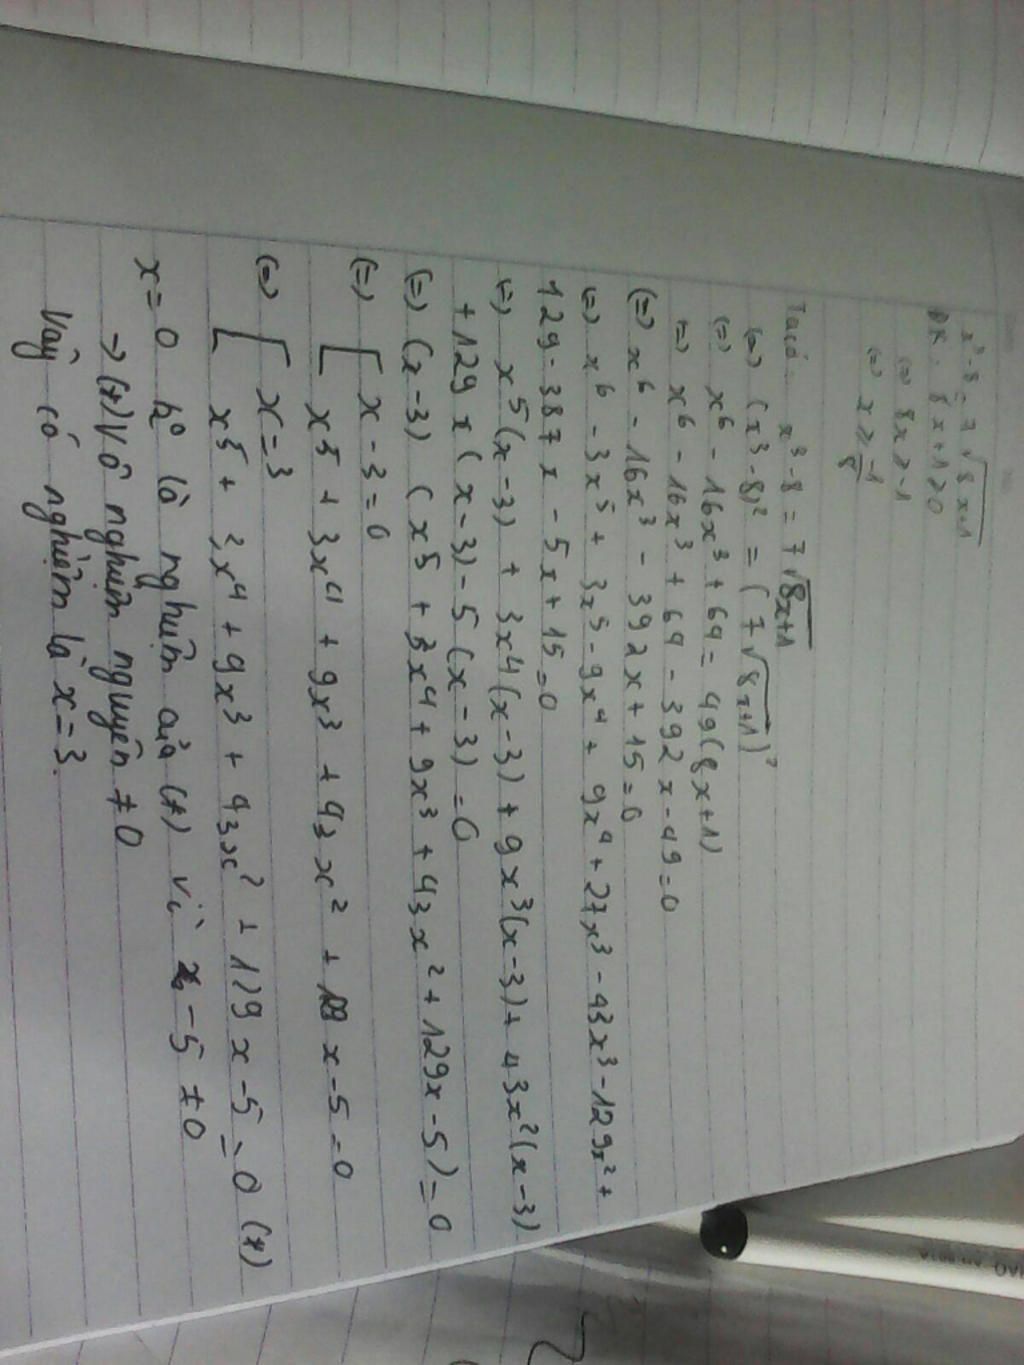 x³ - 8 = 7√8x+1
ĐK: 8x+1 ≥ 0
(=) 8x ≥ -1
(=) x ≥ -1/8
Ta có: x³ - 8 = 7√8x+1
(=) (x³-8)² = (7√8x+1)²
(=) x⁶ - 16x³ + 64 = 49(8x+1)
(=) x⁶ - 16x³ + 64 - 392x - 49 = 0
(=) x⁶ - 16x³ - 392x + 15 = 0
(=) x⁶ - 3x⁵ + 3x⁵ - 9x⁴ + 9x⁴ + 27x³ - 43x³ - 129x² +
129 - 387x - 5x + 15 = 0
(=) x⁵(x-3) + 3x⁴(x-3) + 9x³(x-3) + 43x²(x-3)
+ 129x(x-3) - 5(x-3) = 0
(=) (x-3) (x⁵ + 3x⁴ + 9x³ + 43x² + 129x - 5) = 0
(=) [ x - 3 = 0
x⁵ + 3x⁴ + 9x³ + 43x² + 129 x - 5 = 0
(=) [ x = 3
x⁵ + 3x⁴ + 9x³ + 43x² + 129x - 5 = 0 (*)
x = 0 k⁰ là nghiệm của (*) vì - 5 ≠ 0
→ (*) Vô nghiệm nguyên ≠ 0
Vậy có nghiệm là x = 3.